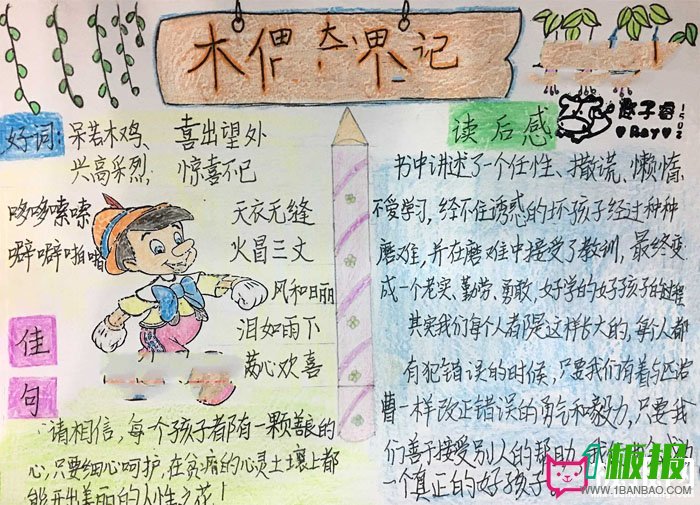 木偶 记
好词:呆若木鸡、喜出望外
兴高采烈;惊喜不已
哆哆嗦嗦 天衣无缝
噼噼啪啪 火冒三丈
风和日丽
泪如雨下
满心欢喜
佳句
请相信,每个孩子都有一颗善良的
心,只要细心呵护,在贫瘠的心灵土壤上都
能开出美丽的人性之花!
子睿
♥Ray♥
1502
读后感
书中讲述了个任性、撒谎、懒惰、
不爱学习,经不住诱惑的坏孩子经过种种
磨难,并在磨难中接受了教训,最终变
成一个老实、勤劳、勇敢、好学的好孩子的过程
其实我们每个人都是这样长大的,每个人都
有犯错误的时候,只要我们有着与匹诺
曹一样改正错误的勇气和毅力,只要我
们善于接受别人的帮助
一个真正的好孩子
1板报
WWW.1BANBAO.COM